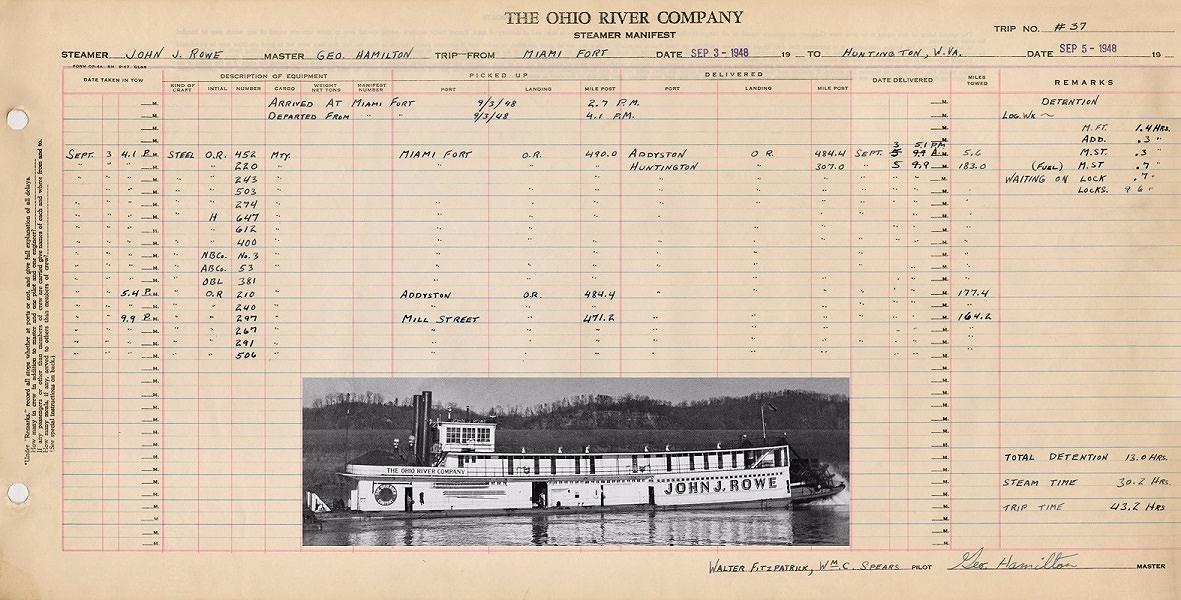 THE OHIO RIVER COMPANY
STEAMER MANIFEST
TRIP NO. #37
STEAMER JOHN J. ROWE MASTER GEO. HAMILTON TRIP—FROM MIAMI FORT DATE SEP 3 - 1948 19 TO HUNTINGTON, W.VA. DATE SEP 5 - 1948 19
DATE TAKEN IN TOW DESCRIPTION OF EQUIPMENT PICKED UP DELIVERED DATE DELIVERED MILES TOWED REMARKS
KIND OF CRAFT INTIAL NUMBER CARGO WEIGHT NET TONS MANIFEST NUMBER PORT LANDING MILE POST PORT LANDING MILE POST
ARRIVED AT MIAMI FORT 9/3/48 2.7 P.M. M. DETENTION
DEPARTED FROM " " 9/3/48 4.1 P.M. M. LOG. WK ~
M. M. M. FT. 1.4 HRS.
M. M. ADD. .3 "
SEPT. 3 4.1 P.M. STEEL O.R. 452 MTY. MIAMI FORT O.R. 490.0 ADDYSTON O R. 484.4 SEPT. 3 5.1 PM 5.6 M. ST. .3 "
" " " " " 220 " " " " HUNTINGTON " 307.0 5 9.9 " 183.0 (FUEL) M. ST .7 "
" " " " " 243 " " " " " " " " " " WAITING ON LOCK .7 "
" " " " " 503 " " " " " " " " " " LOCKS. 9 6 "
" " " " " 274 " " " " " " " " " "
" " " " H 647 " " " " " " " " " "
" " " " " 612 " " " " " " " " " "
" " " " " 400 " " " " " " " " " "
" " " " NBCO. NO. 3 " " " " " " " " " "
" " " " ABCO. 53 " " " " " " " " " "
" " " " OBL 381 " " " " " " " " " "
" " 5.4 P.M. " O.R 210 " ADDYSTON O.R. 484.4 " " " " " 177.4
" " " " " 240 " " " " " " " " " "
" " 9.9 P.M. " " 297 " MILL STREET " 471.2 " " " " " 164.2
" " " " " 267 " " " " " " " " " "
" " " " " 291 " " " " " " " " " "
" " " " " 506 " " " " " " " " " "
THE OHIO RIVER COMPANY
JOHN J. ROWE
TOTAL DETENTION 13.0 HRS.
STEAM TIME 30.2 HRS.
TRIP TIME 43.2 HRS
WALTER FITZPATRICK, WM. C. SPEARS PILOT Geo. Hamilton MASTER
"Under "Remarks," record all stops whether at ports or not, and give full explanation of all delays.
How many in crew in addition to master and one pilot and one engineer?
If any passengers or other than members of crew are carried give names of each and where from and to.
How many meals, if any, served to others than members of crew?
(See special instructions on back.)